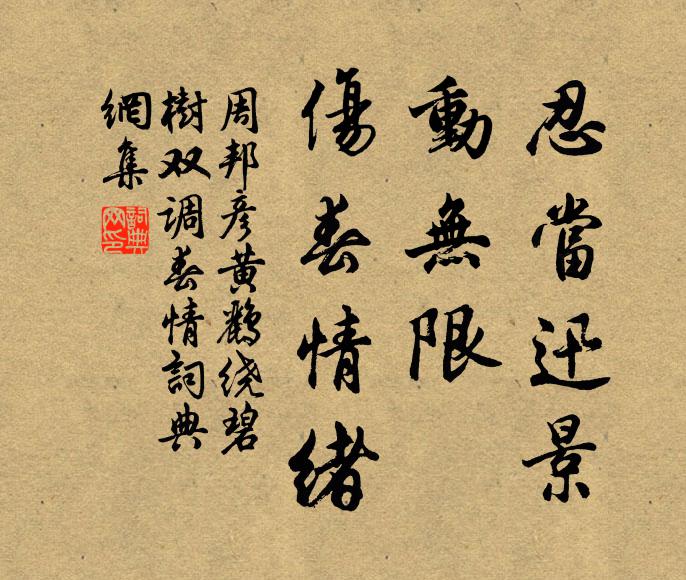 忍當迅景
動無限
傷春情緒
周邦彦黄鸝绕碧
樹双调春情詞典
網集
詞典网印